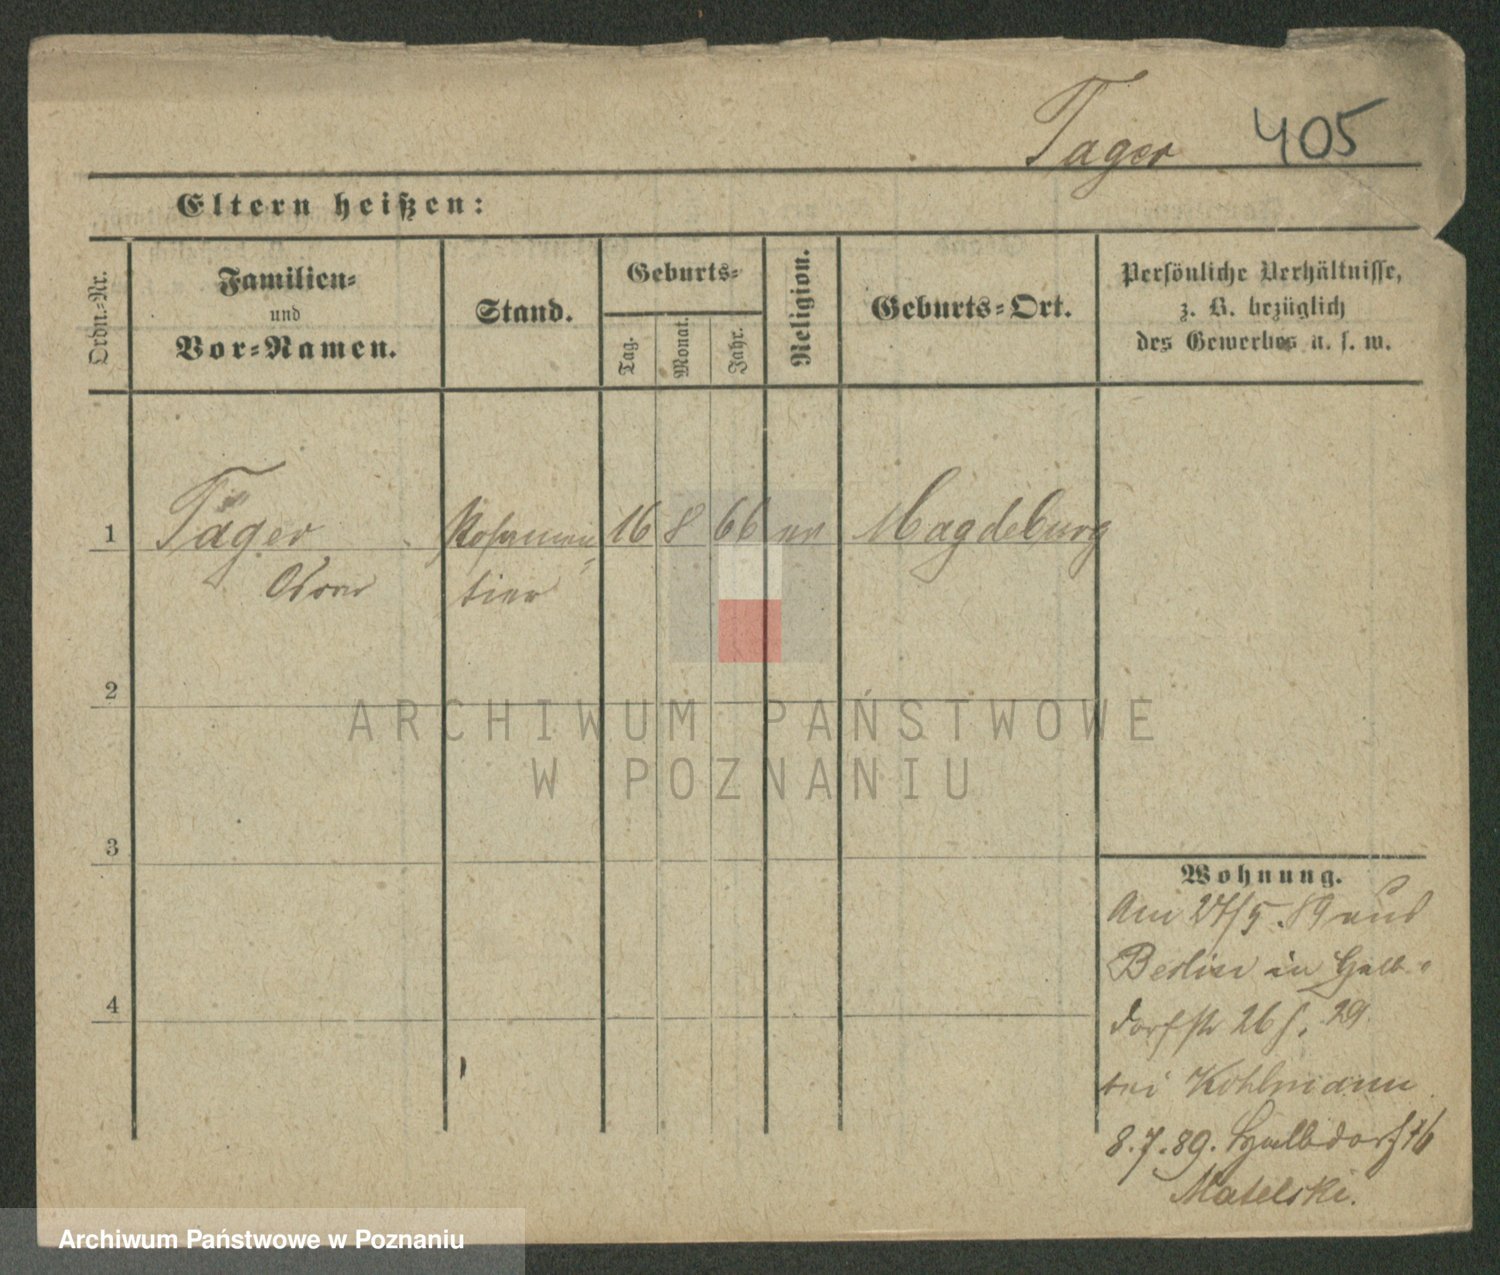 Tager 405
Eltern heißen:
Ordn.-Nr.
Familien-
und
Vor-Namen.
Stand.
Geburts-
Tag.
Monat.
Jahr.
Religion.
Geburts-Ort.
Persönliche Verhältnisse,
z. B. bezüglich
des Gewerbes u. s. w.
1 Täger Posamen- 16 8 66 Magdeburg
tier
2
3
4
Wohnung.
Am 27/5. 89 aus
Berlin in Halb-
dorfstr 26 29
bei Kohlmann
8.7.89. Halbdorfst
Matelski.
ARCHIWUM PAŃSTWOWE
W POZNANIU
Archiwum Państwowe w Poznaniu